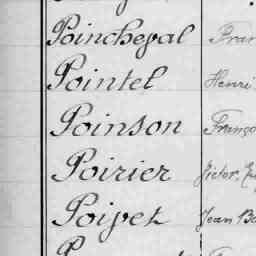 Poincheval Fran
Pointel Henri
Poinson Franço
Poirier Victor, Eug
Poipet Jean Ba